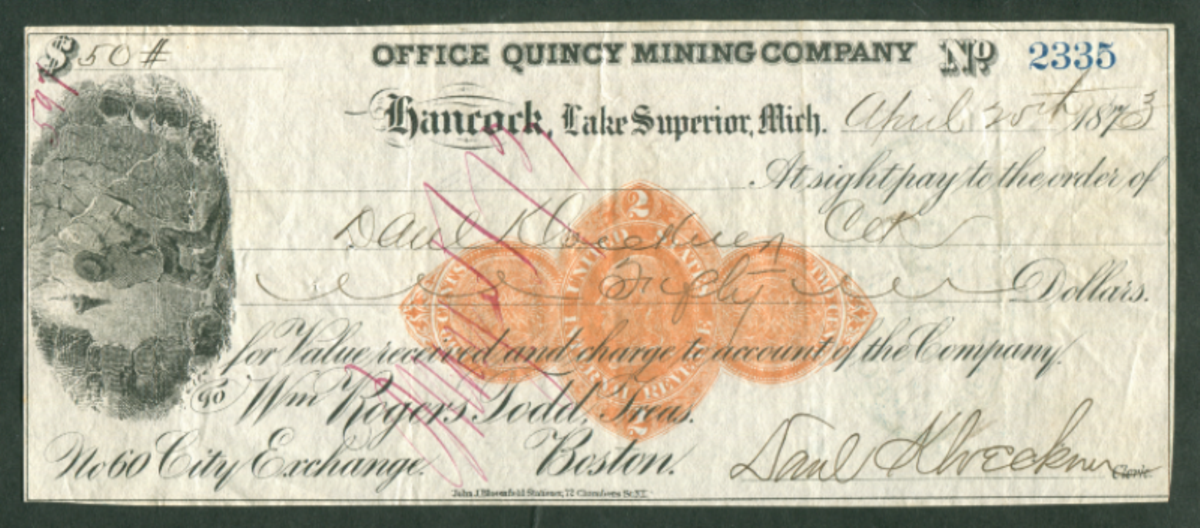 $ 50 #
OFFICE QUINCY MINING COMPANY No 2335
Hancock, Lake Superior, Mich. April 25th 1873
At sight pay to the order of
Daul Klveckner
Fifty Dollars.
for Value received and charge to account of the Company.
To Wm Rogers Todd, Treas.
No 60 City Exchange. Boston.
Daul Klveckner Clerk.
John J. Bloomfield Stationer, 72 Chambers St. N.Y.
2
UNITED STATES
INTERNAL REVENUE
2